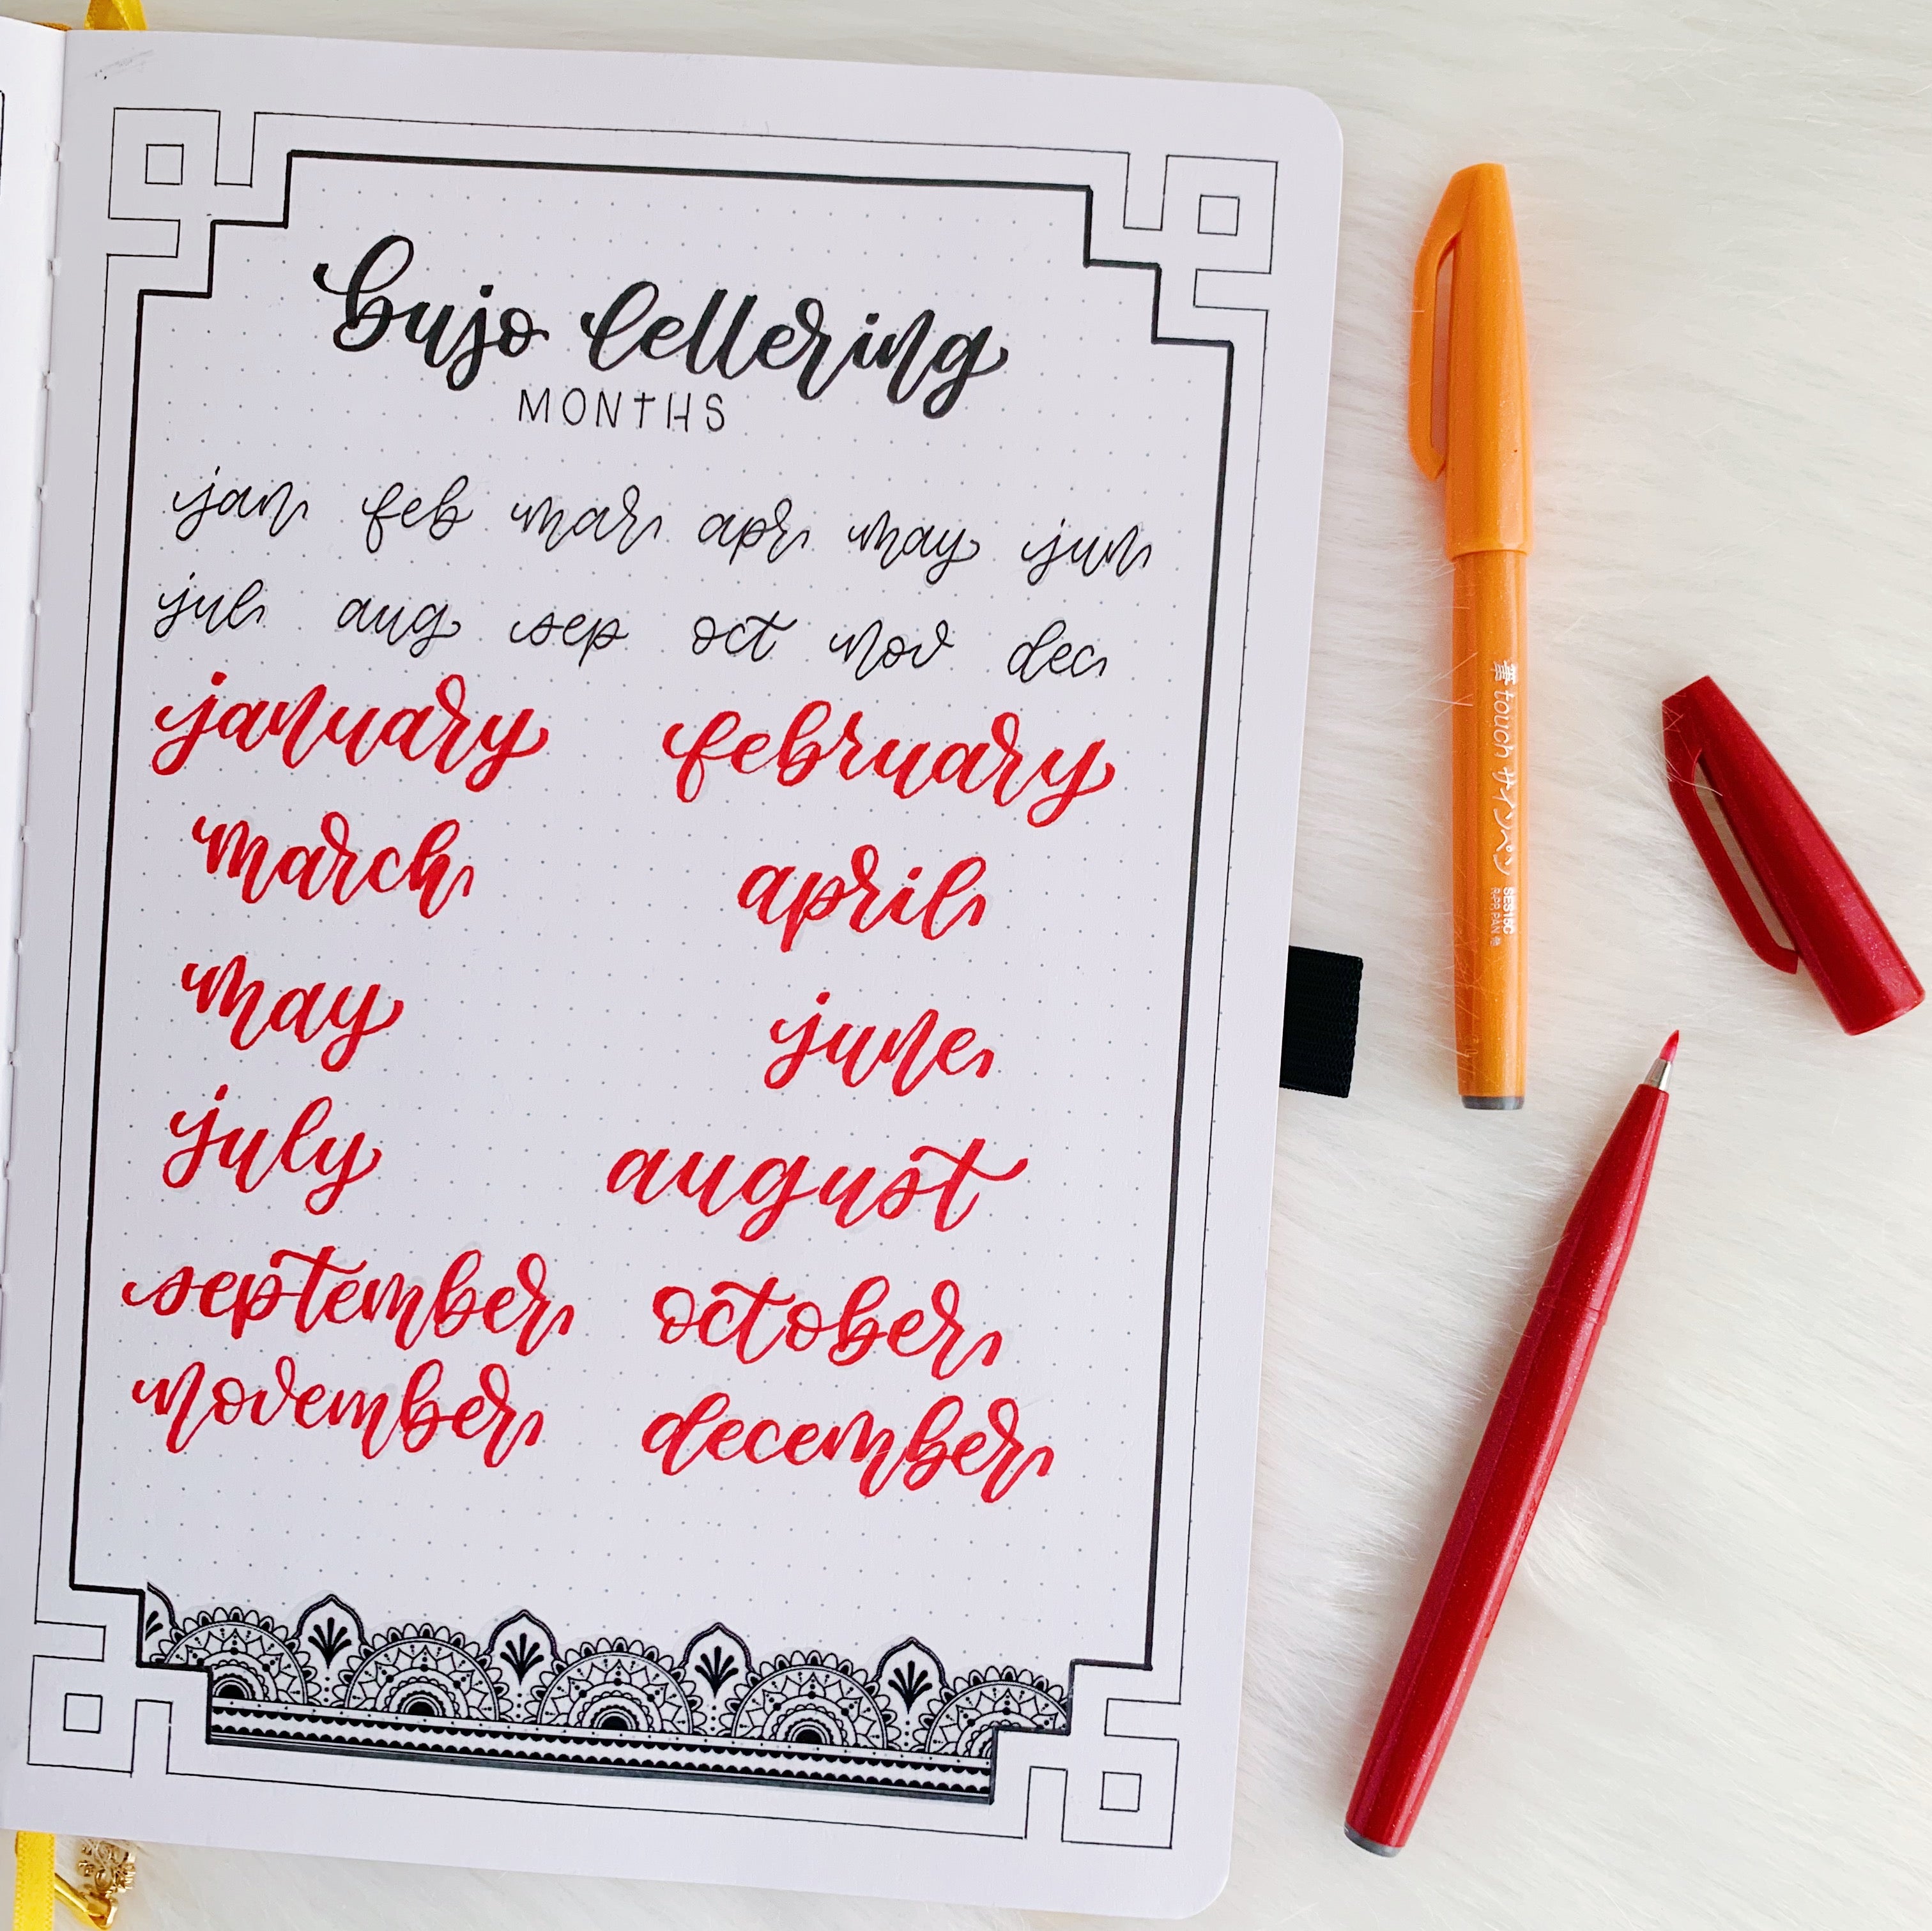 bujo lettering
MONTHS
jan feb mar apr may jun
jul aug sep oct nov dec
january february
march april
may june
july august
september october
november december
筆touch サインペン SES15C